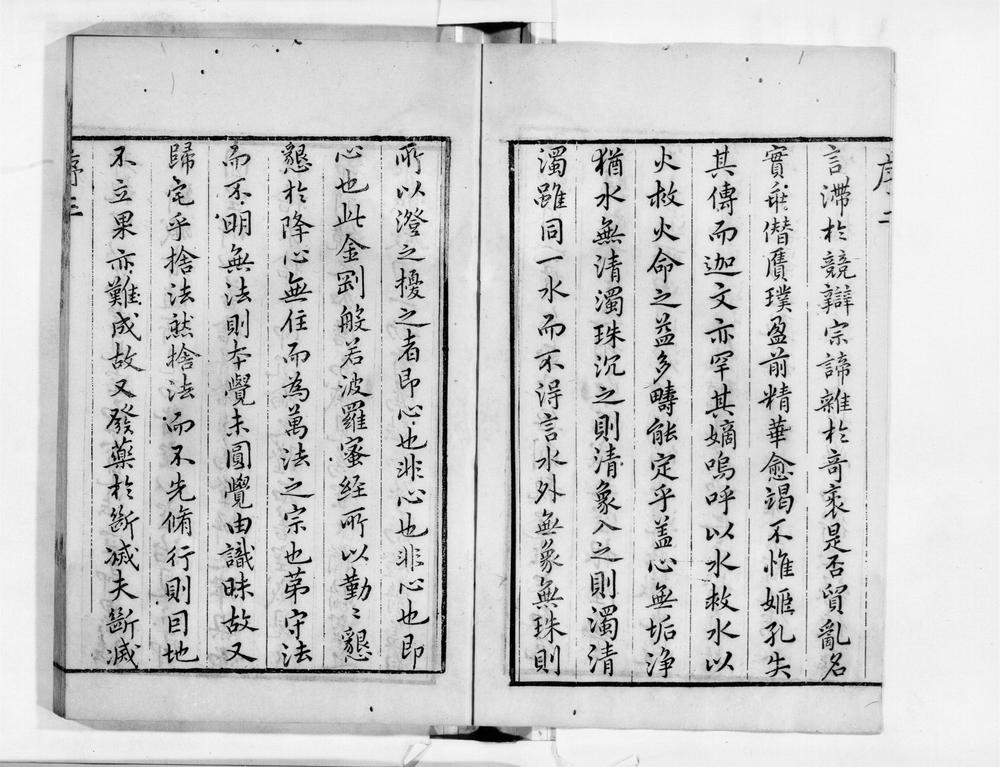 序二
言滯於競辯宗諦雜於竒衺是否貿亂名
實乖僣贋璞盈前精華愈竭不惟姬孔失
其傳而迦文亦罕其嫡嗚呼以水救水以
火救火命之益多疇能定乎盖心無垢淨
猶水無清濁珠沉之則清象入之則濁清
濁雖同一水而不得言水外無象無珠則
所以澄之擾之者即心也非心也非心也即
心也此金剛般若波羅蜜經所以勤〻懇
懇於降心無住而為萬法之宗也苐守法
而不明無法則本覺未圓覺由識昧故又
歸宅乎捨法然捨法而不先脩行則因地
不立果亦難成故又發藥於斷滅夫斷滅
序三